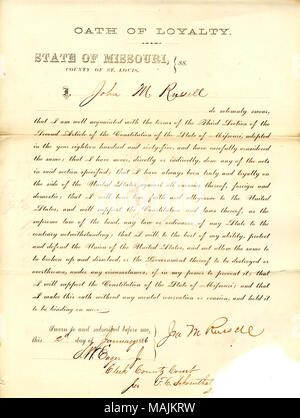 OATH OF LOYALTY.
STATE OF MISSOURI,
COUNTY OF ST. LOUIS.
SS.
I, John M Russell
do solemnly swear,
that I am well acquainted with the terms of the Third Section of the
Second Article of the Constitution of the State of Missouri, adopted
in the year eighteen hundred and sixty-five, and have carefully considered
the same; that I have never, directly or indirectly, done any of the acts
in said section specified; that I have always been truly and loyally
on the side of the United States against all enemies thereof, foreign and
domestic; that I will bear true faith and allegiance to the United
States, and will support the Constitution and laws thereof, as the
supreme law of the land, any law or ordinance of any State to the
contrary notwithstanding; that I will, to the best of my ability, protect
and defend the Union of the United States, and not allow the same
to be broken up and dissolved, or the Government thereof to be destroyed or
overthrown, under any circumstances, if in my power to prevent it; that I
will support the Constitution of the State of Missouri; and that
I make this oath without any mental reservation or evasion, and hold it
to be binding on me.
Sworn to and subscribed before me,
this 2d day of January 186
Jno M Russell
Clerk County Court
alamy
Image ID: MAJKRW
www.alamy.com